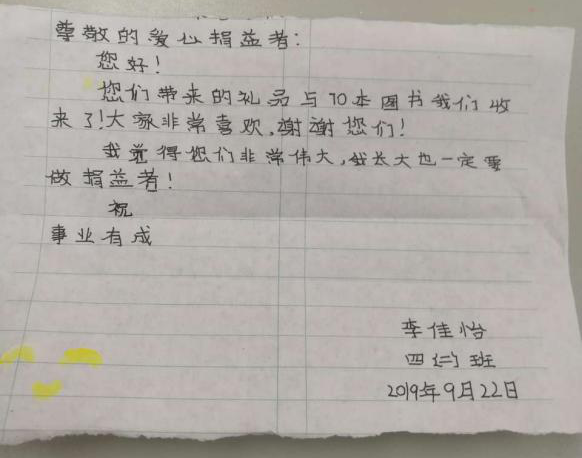 尊敬的爱心捐益者：
您好！
您们带来的礼品与70本图书我们收
来了！大家非常喜欢，谢谢您们！
我觉得您们非常伟大，我长大也一定要
做捐益者！
祝
事业有成
李佳怡
四㈢班
2019年9月22日